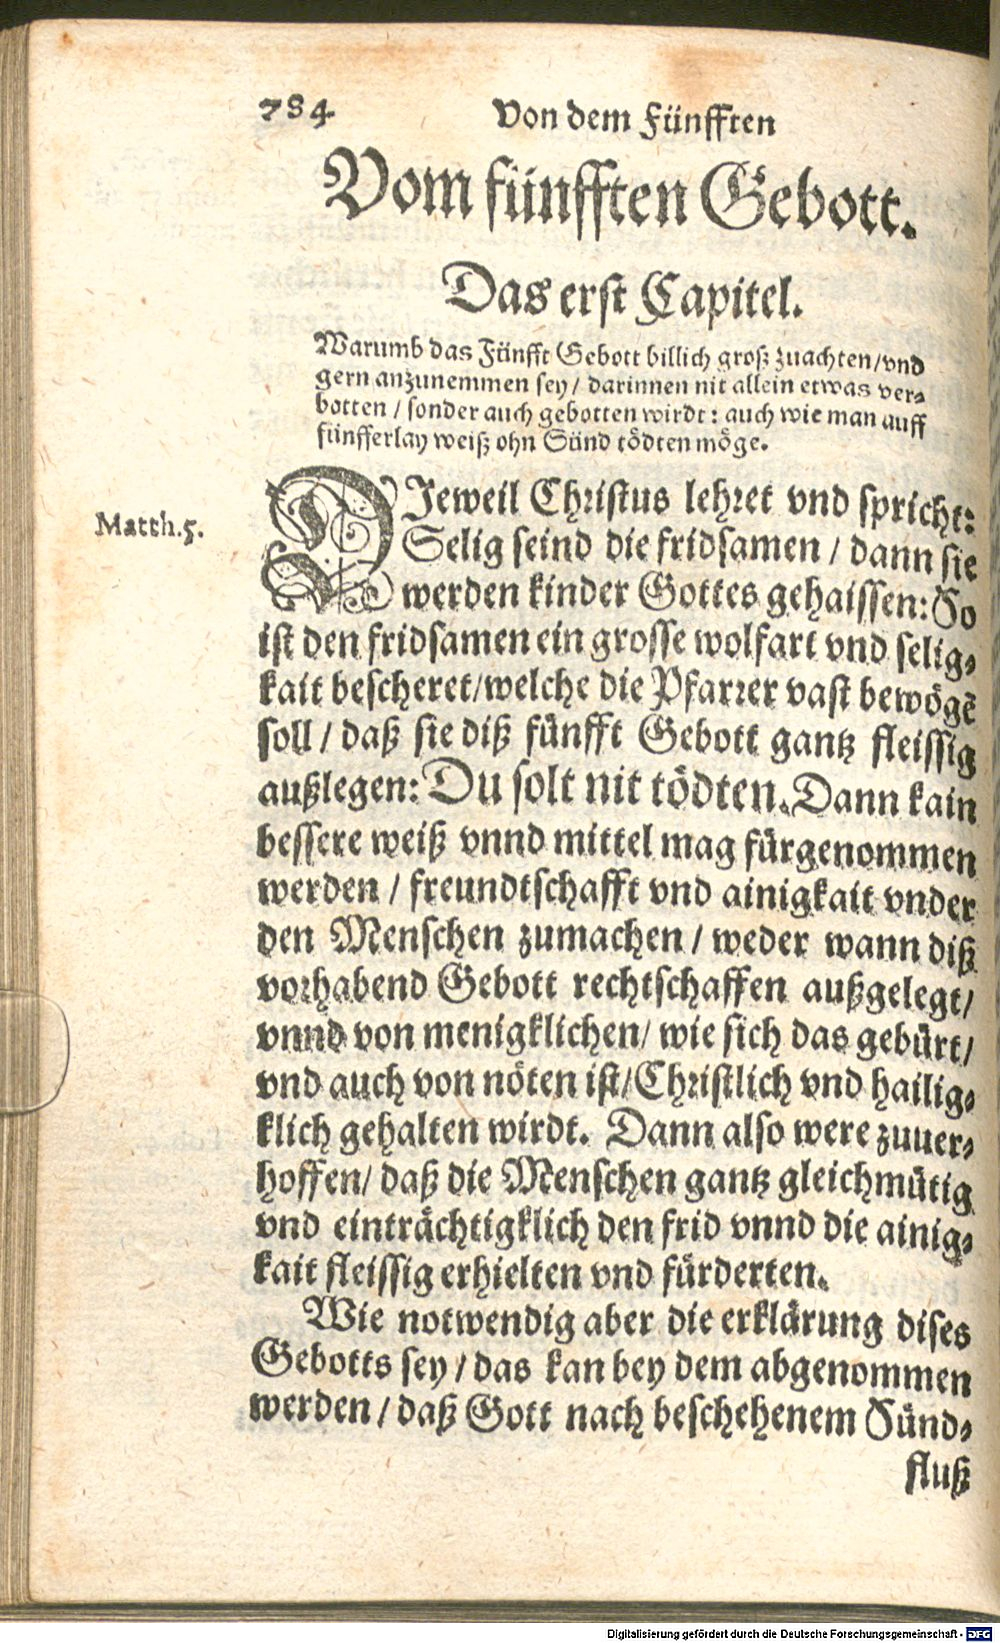 784 Von dem Fünfften
Vom fünfften Gebott.
Das erst Capitel.
Warumb das Fünfft Gebott billich groß zuachten/vnd
gern anzunemmen sey/ darinnen nit allein etwas ver-
botten / sonder auch gebotten wirdt: auch wie man auff
fünfferlay weiß ohn Sünd tödten möge.
Matth.5.
DJeweil Christus lehret vnd spricht:
Selig seind die fridsamen / dann sie
werden kinder Gottes gehaissen: So
ist den fridsamen ein grosse wolfart vnd selig-
kait bescheret/welche die Pfarrer vast bewögē
soll / daß sie diß fünfft Gebott gantz fleissig
außlegen: Du solt nit tödten. Dann kain
bessere weiß vnnd mittel mag fürgenommen
werden / freundtschafft vnd ainigkait vnder
den Menschen zumachen / weder wann diß
vorhabend Gebott rechtschaffen außgelegt/
vnnd von menigklichen/ wie sich das gebürt/
vnd auch von nöten ist/Christlich vnd hailig-
klich gehalten wirdt. Dann also were zuuer-
hoffen/ daß die Menschen gantz gleichmütig
vnd einträchtigklich den frid vnnd die ainig-
kait fleissig erhielten vnd fürderten.
Wie notwendig aber die erklärung dises
Gebotts sey / das kan bey dem abgenommen
werden / daß Gott nach beschehenem Sünd-
fluß
Digitalisierung gefördert durch die Deutsche Forschungsgemeinschaft - DFG